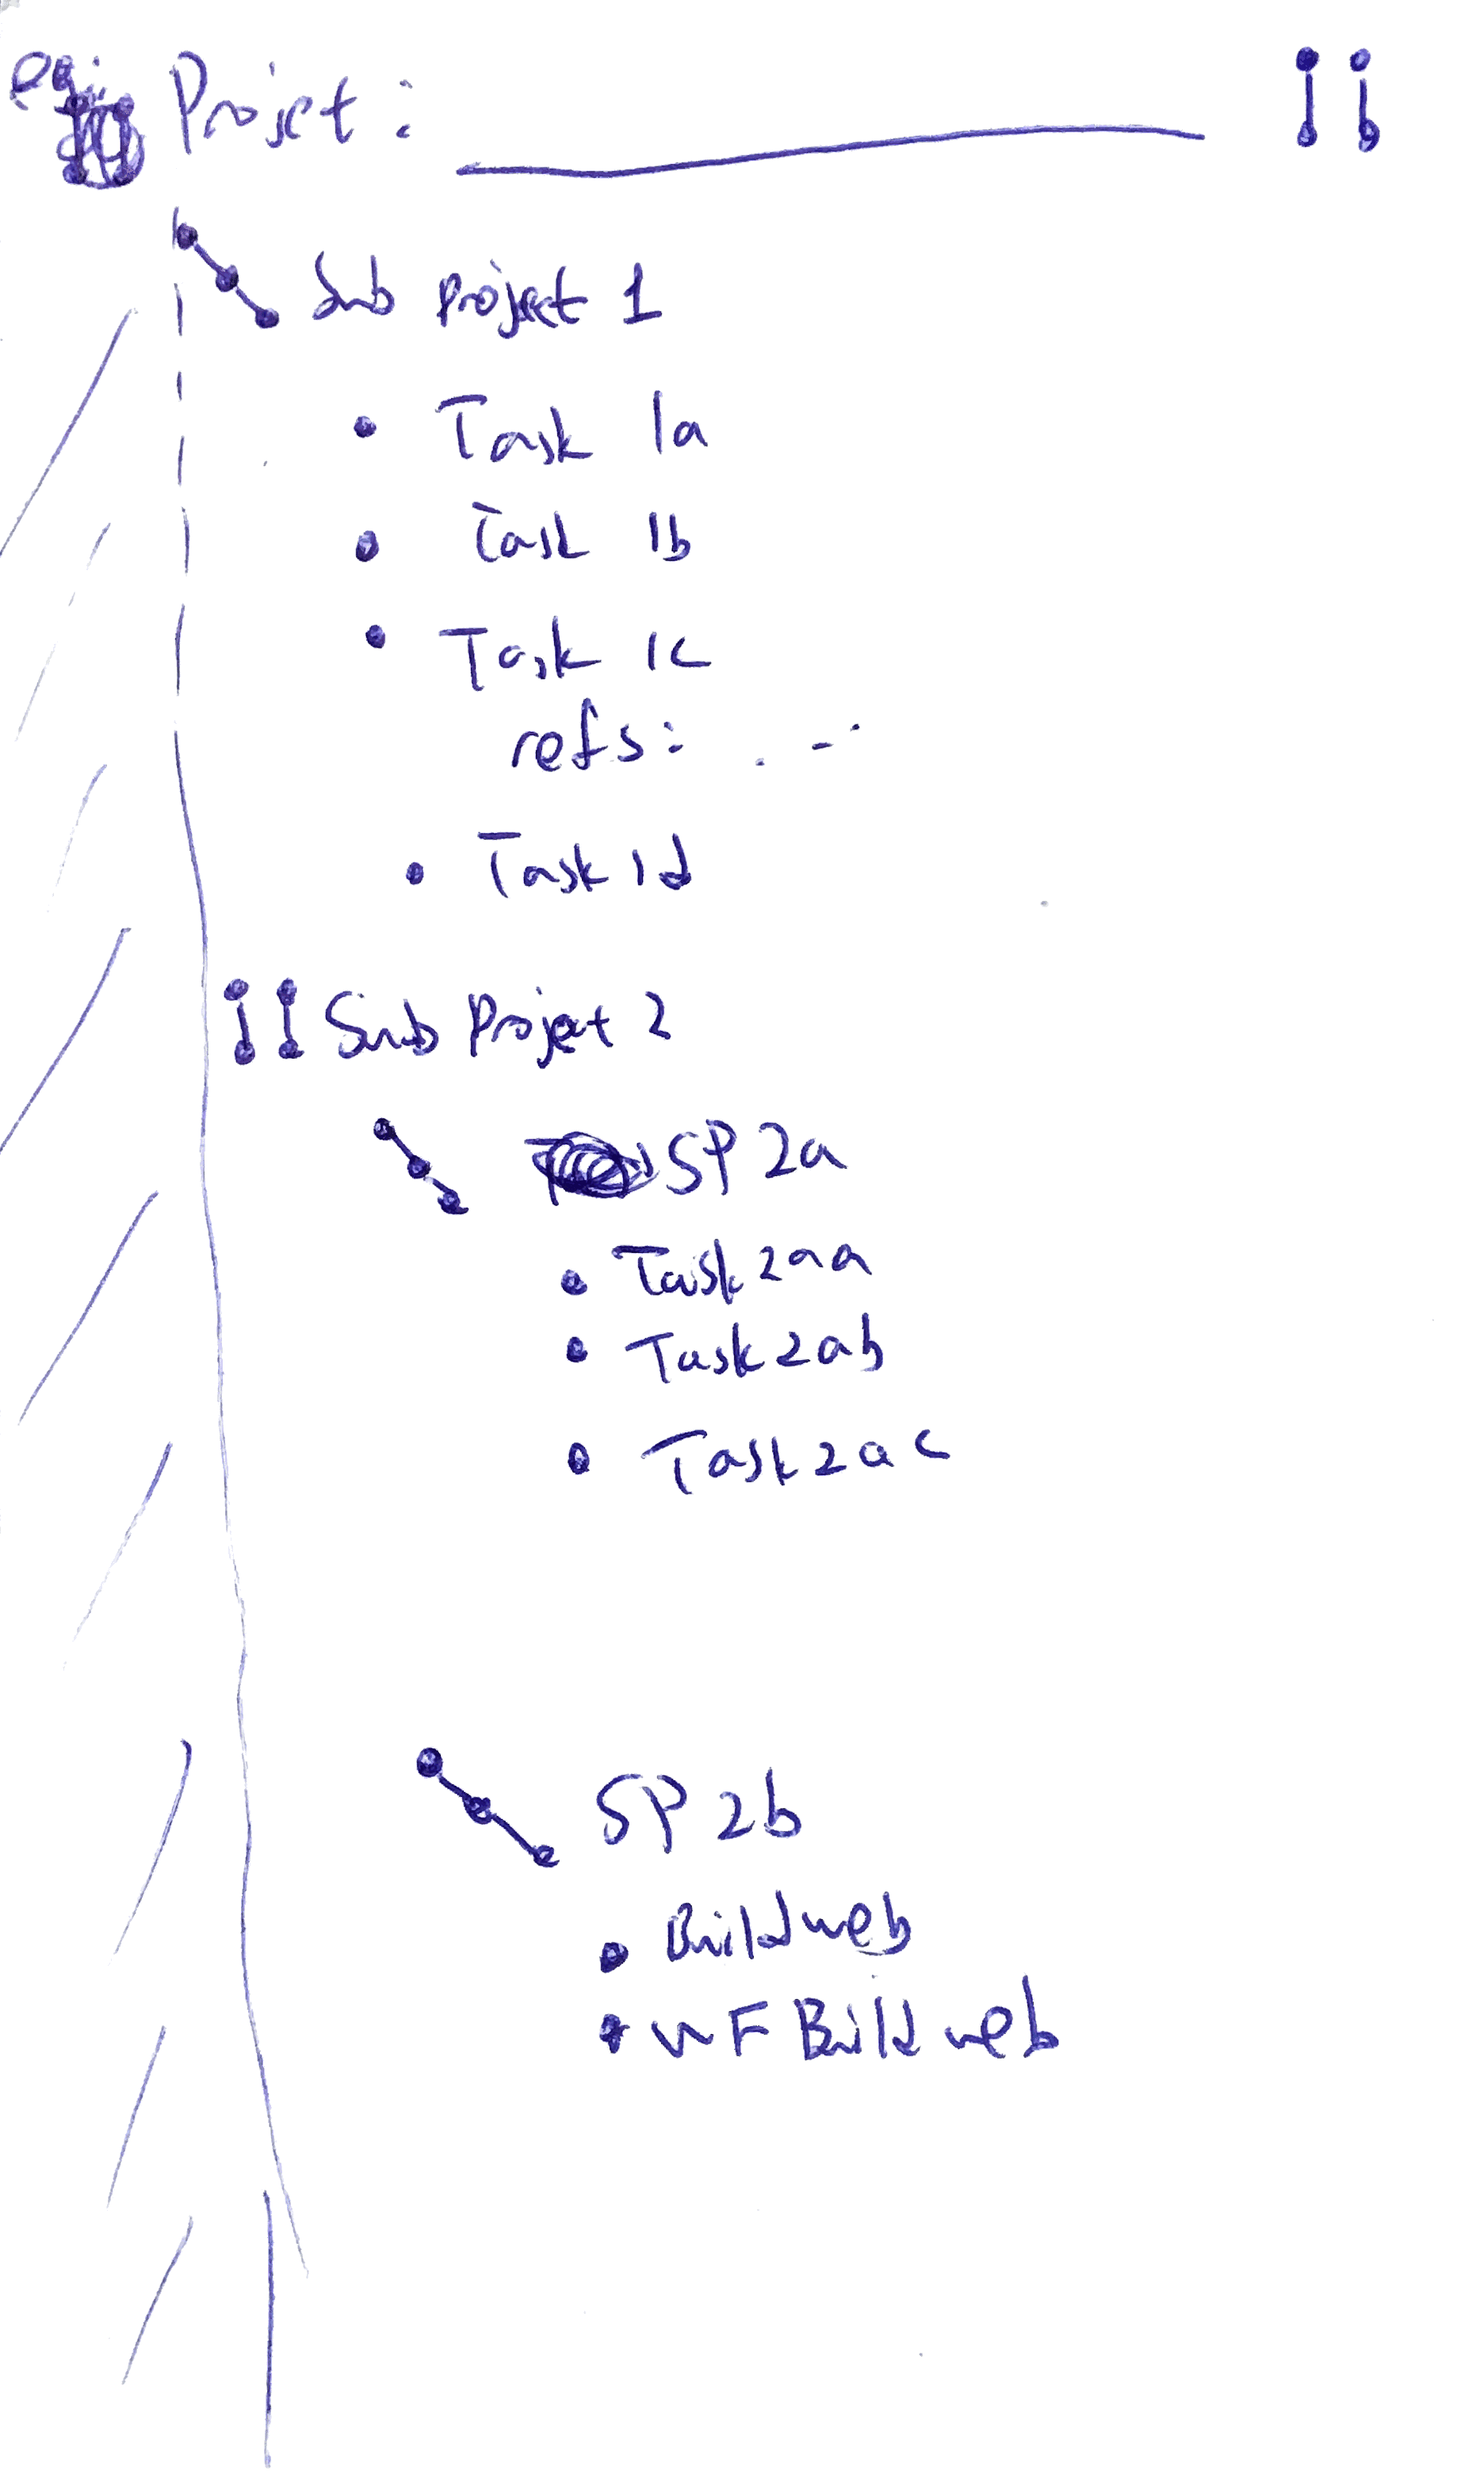 eg: Project:
Sub Project 1
• Task 1a
• Task 1b
• Task 1c
refs: . - .
• Task 1d
Sub Project 2
SP 2a
• Task 2aa
• Task 2ab
• Task 2ac
SP 2b
• Build web
• WF Build web